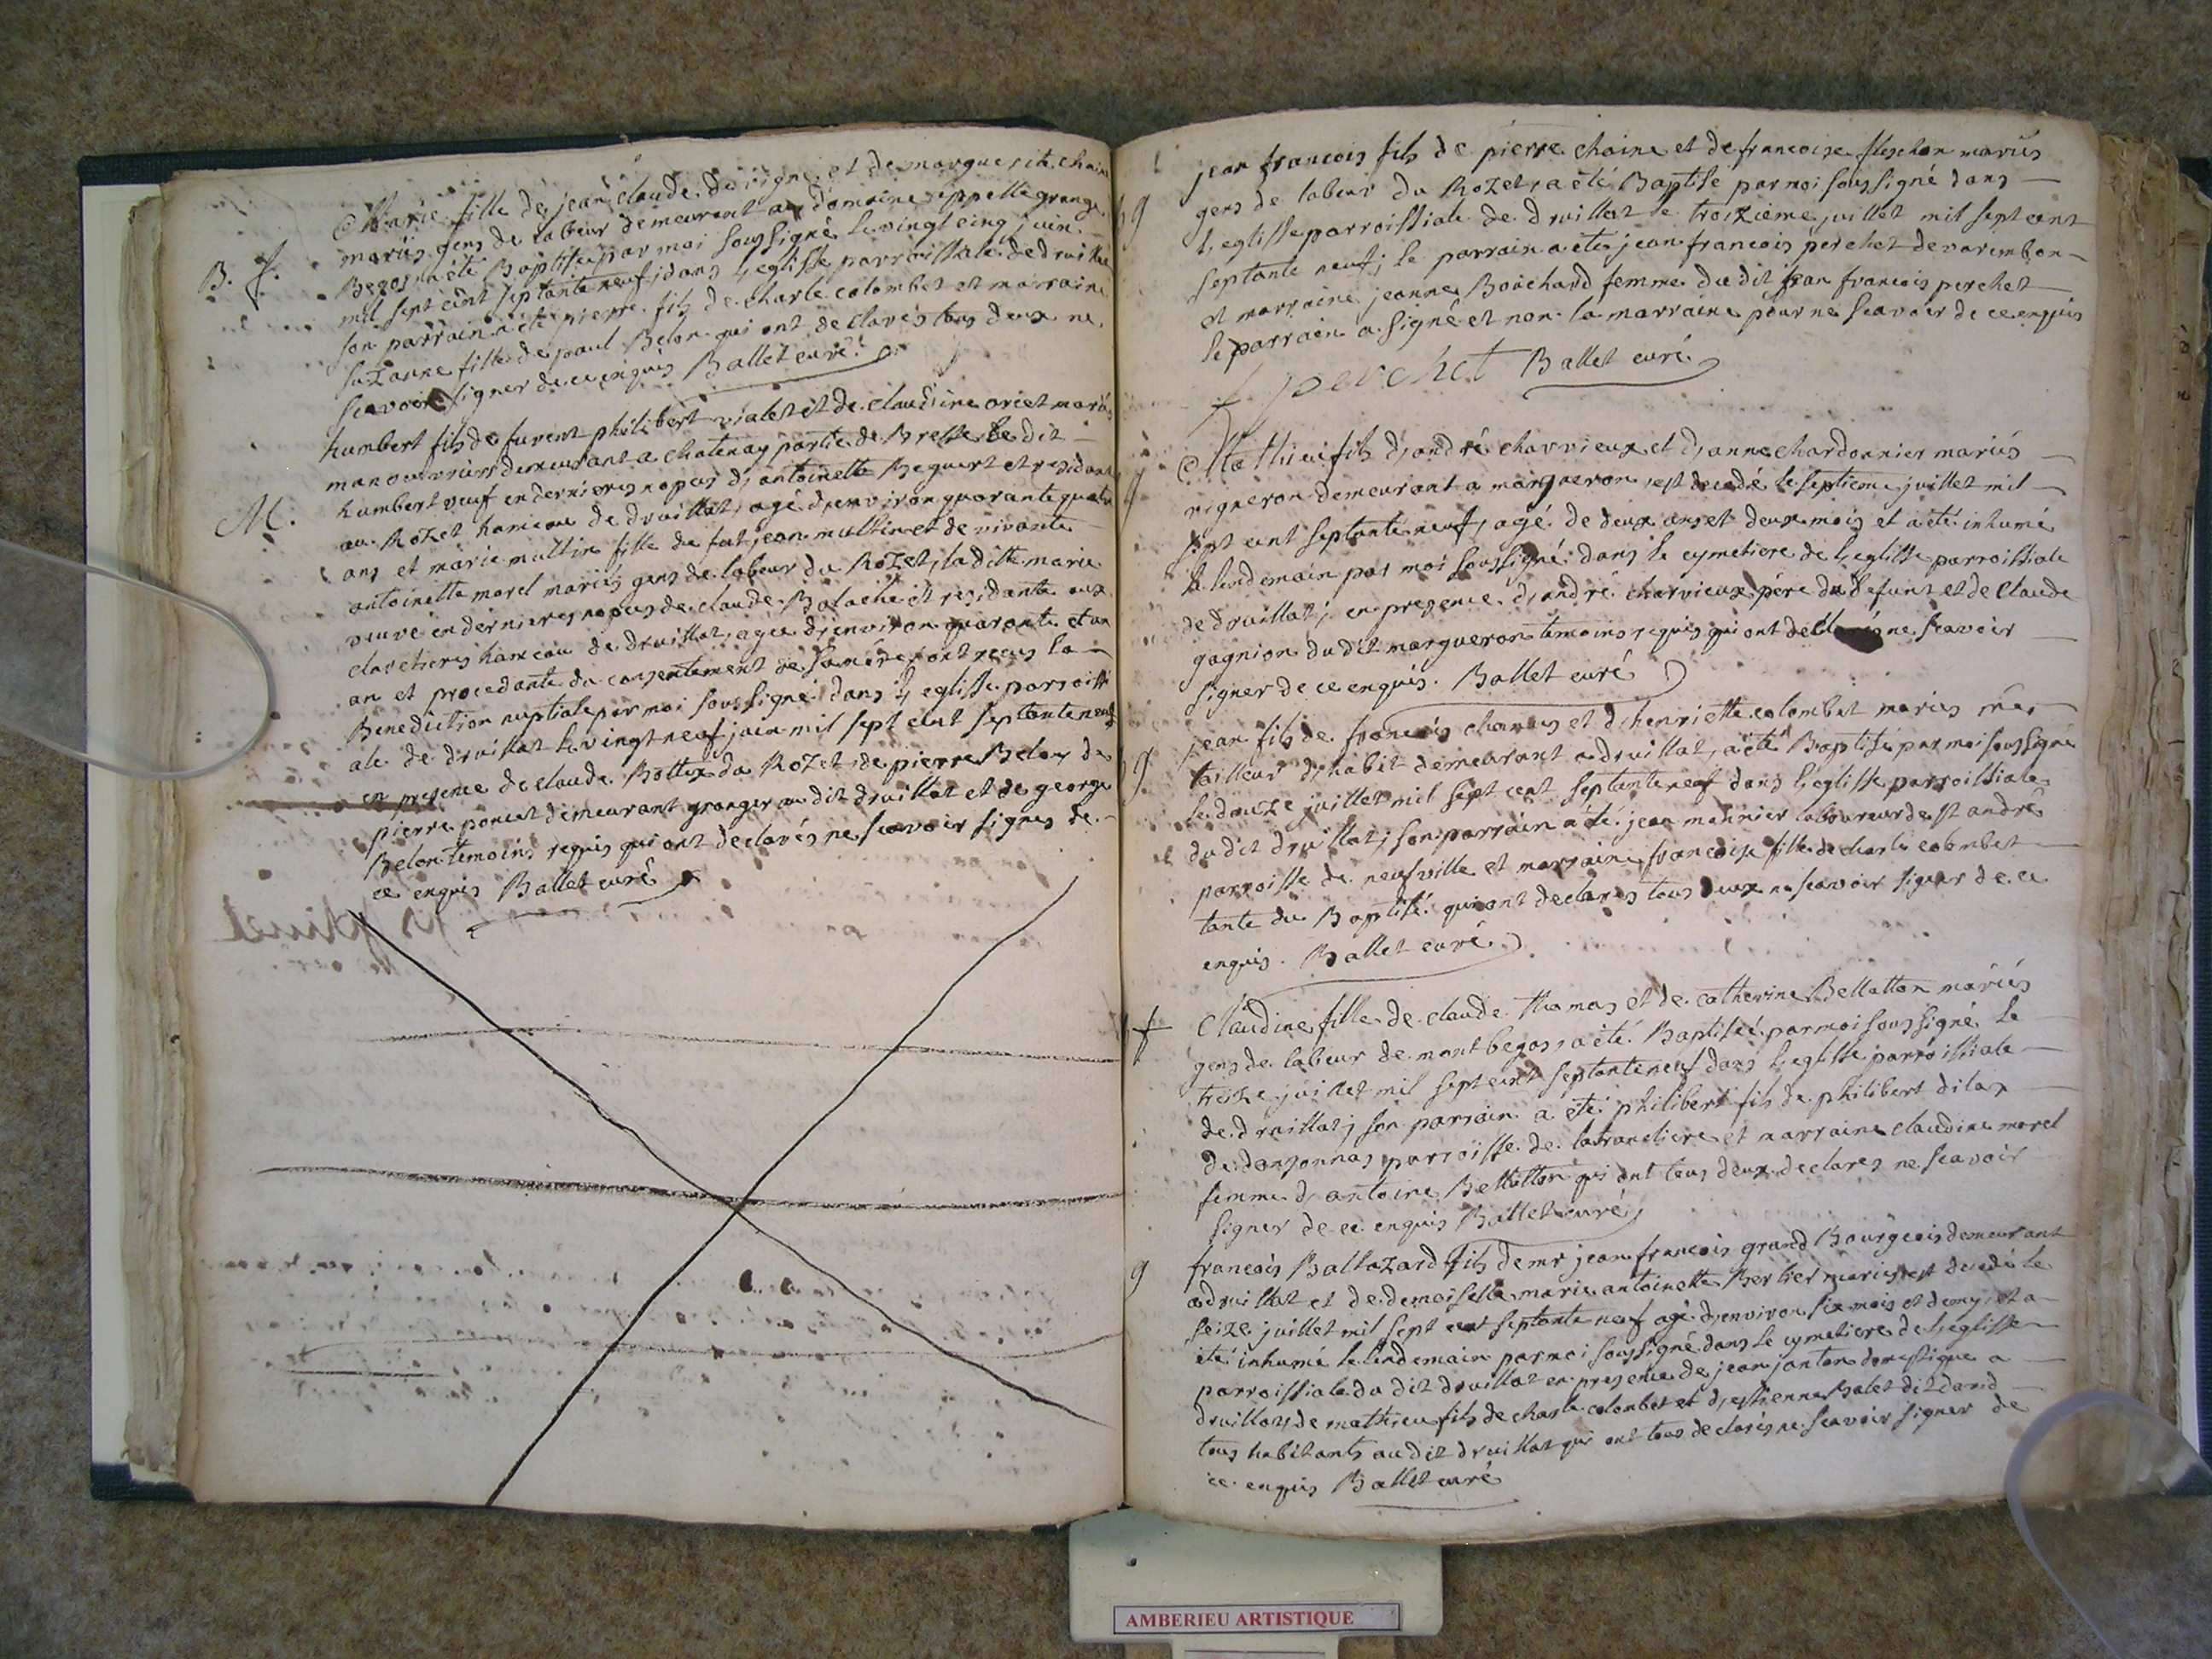 Marie fille de jean claude et de marguerite
mariés gens de labeur demeurant au domaine appellé grange
B. f.
Begos a été Baptisée par moi soussigné le vingt cinq juin
mil sept cent septante neuf dans l'eglisse parroissiale de druillat
son parrain a été pierre fils de charle colombet et marraine
suzanne fille de paul Belon qui ont declarés tous deux ne
scavoir signer de ce enquis Ballet curé
humbert fils de furent philibert vialet et de claudine mariés
manouvriers demeurant a chatenay partie de Bresse le dit
humbert veuf en dernieres nopces d'antoinette et residant
M.
au Rozet hameau de druillat, agé d'environ quarante quatre
ans et marie multin fille de fut jean multin et de vivante
antoinette morel mariés gens de labeur du Rozet, la ditte marie
veuve en dernieres nopces de claude et residante aux
hameau de druillat, agée d'environ quarante et un
an et procedante du consentement de sa mere, ont recus la
Benediction nuptiale par moi soussigné dans l'eglisse parroissi
ale de druillat le vingt neuf juin mil sept cent septante neuf
en presence de claude du Rozet, de pierre Belon, de
pierre poncet demeurant granger au dit druillat et de george
Belon temoins requis qui ont declarés ne scavoir signer de
ce enquis Ballet curé
jean francois fils de pierre chaine et de francoise mariés
g
gens de labeur du Rozet, a été Baptisé par moi soussigné dans
l'eglisse parroissiale de druillat le troizieme juillet mil sept cent
septante neuf; le parrain a été jean francois perchet de varembon
et marraine jeanne Bouchard femme du dit jean francois perchet
le parrain a signé et non la marraine pour ne scavoir de ce enquis
perchet Ballet curé
Mathieu fils d'andré charvieux et d'anne chardonnier mariés
vigneron demeurant a margueron, est decedé le septieme juillet mil
sept cent septante neuf, agé de deux ans et deux mois et a été inhumé
le lendemain par moi soussigné dans le cymetiere de l'eglisse parroissiale
de druillat; en presence d'andré charvieux père du defunt et de claude
gagnion du dit margueron temoins requis qui ont declarés ne scavoir
signer de ce enquis. Ballet curé
jean fils de francois et d'henriette colombet mariés
g.
tailleur d'habit demeurant a druillat, a été Baptisé par moi soussigné
le douze juillet mil sept cent septante neuf dans l'eglisse parroissiale
du dit druillat, son parrain a été jean monnier laboureur de st andré
parroisse de neufville et marraine francoise fille de charle colombet
tante du Baptisé qui ont declarés tous deux ne scavoir signer de ce
enquis. Ballet curé
Claudine fille de claude thomas et de catherine Bellatton mariés
f
gens de labeur de mont begos, a été Baptiséé par moi soussigné le
treize juillet mil sept cent septante neuf dans l'eglisse parroissiale
de druillat; son parrain a été philibert fils de philibert
de donsonnas parroisse de latrancliere et marraine claudine morel
femme d'antoine Bellatton qui ont tous deux declarés ne scavoir
signer de ce enquis Ballet curé
francois Baltazard fils de mr jean francois grand Bourgeois demeurant
g
a druillat et de demoiselle marie antoinette Berlier mariés, est decedé le
seize juillet mil sept cent septante neuf agé d'environ six mois et demy, et a
été inhumé le lendemain par moi soussigné dans le cymetiere de l'eglisse
parroissiale du dit druillat en presence de jean janton domestique a
druillat, de mathieu fils de charle colombet et d'estienne Balet dit david
tous habitants au dit druillat qui ont tous declarés ne scavoir signer de
ce enquis Ballet curé
AMBERIEU ARTISTIQUE